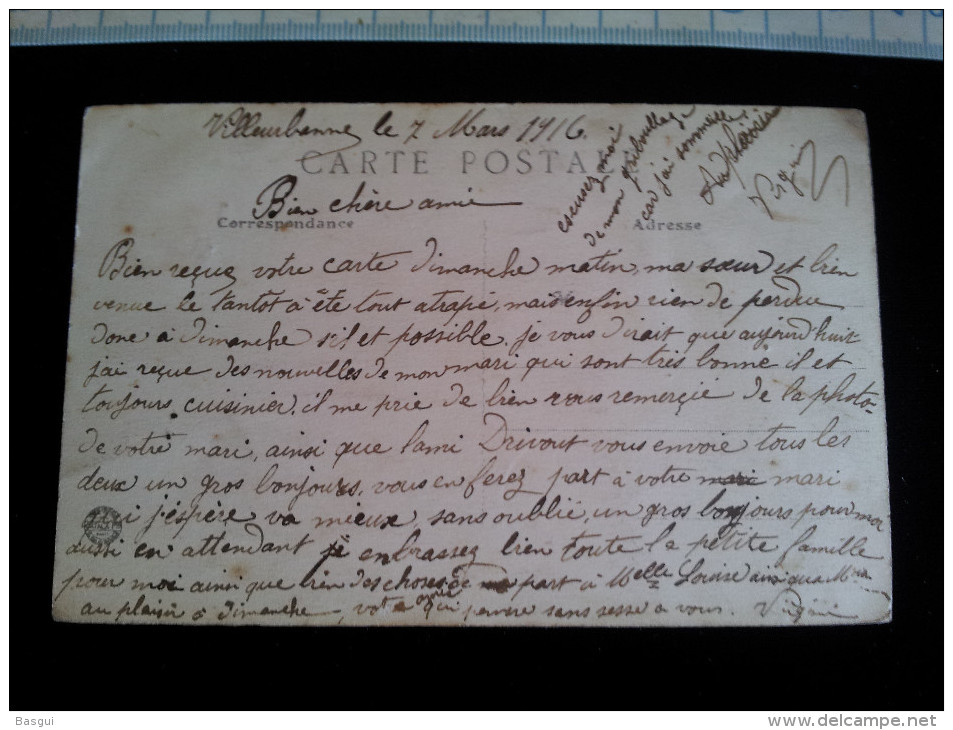 Villeurbanne le 7 Mars 1916
CARTE POSTALE
Bien chère amie
Correspondance
Adresse
escusez moi
de mon griboullage
car j'ai sommeille
au plaisir
Virginie
Bien reçue votre carte dimanche matin, ma sœur et bien
venue le tantôt à été tout atrapé, mais enfin rien de perdue
donc à dimanche s'il et possible, je vous dirait que aujourd'huit
j'ai reçue des nouvelles de mon mari qui sont très bonne il et
toujours cuisinier, il me prie de bien vous remerçié de la photo-
de votre mari, ainsi que l'ami Drivout vous envoie tous les
deux un gros bonjours, vous en ferez part à votre mari
j'espère va mieux, sans oublié, un gros bonjours pour moi
aussi en attendant enbrassez bien toute la petite famille
pour moi ainsi que bien des choses de part à Melle Louise ainsi qua
au plaisir à dimanche, votre amie qui pensse sans sesse à vous. Virginie
Basgui
delcampe.net